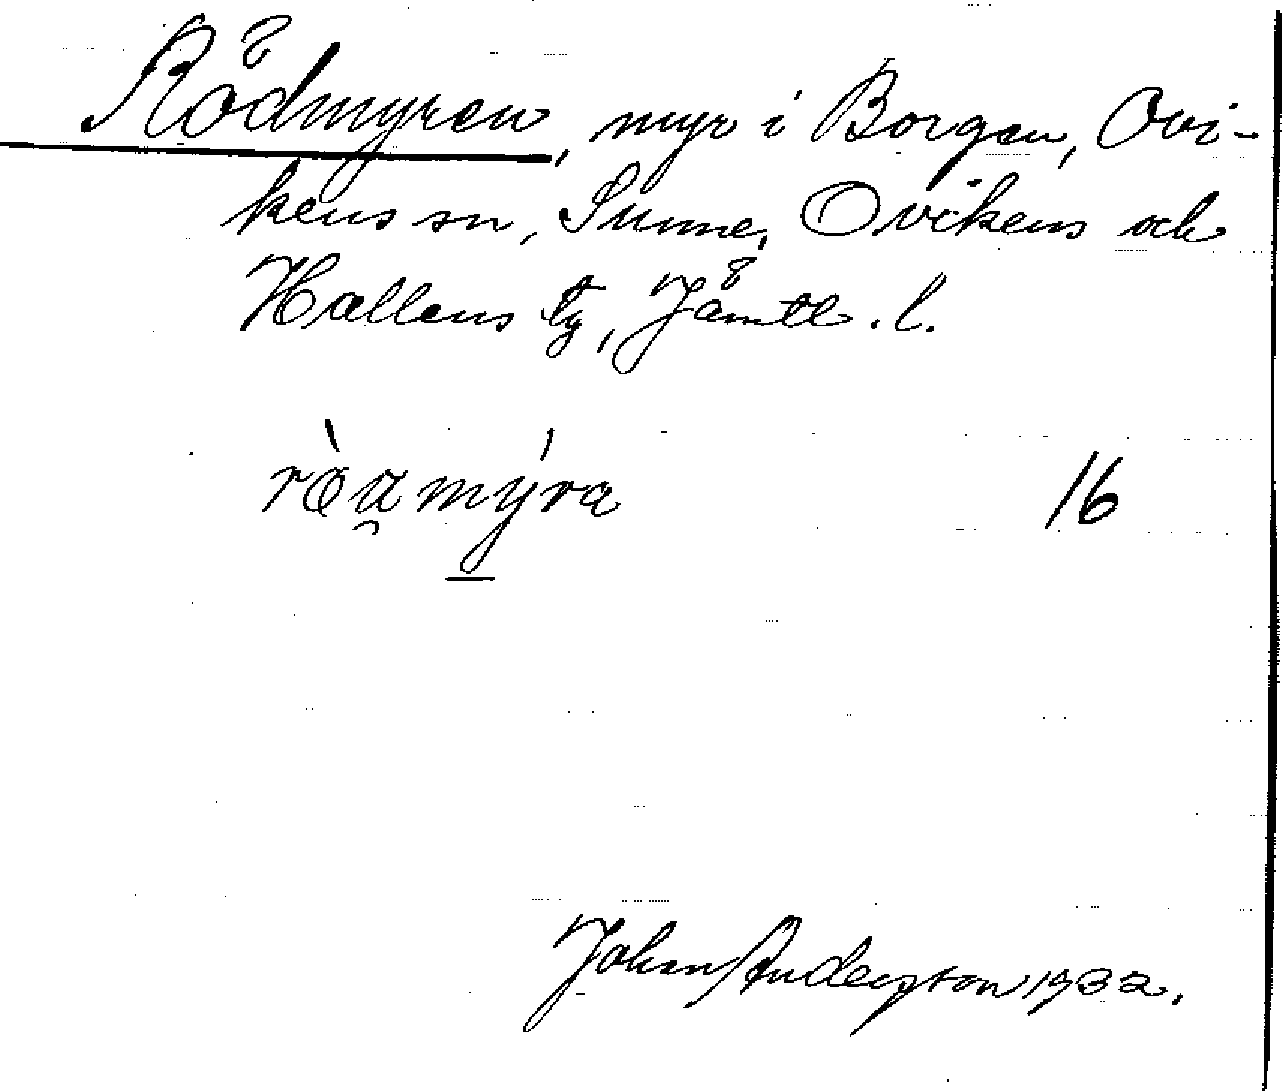 Rödmyren, myr i Borgen, Ovi-
kens sn, Sunne, Ovikens och
Hallens tg, Jämtl. l.
ròa̯mýra 16
Johan Anderzson 1932.